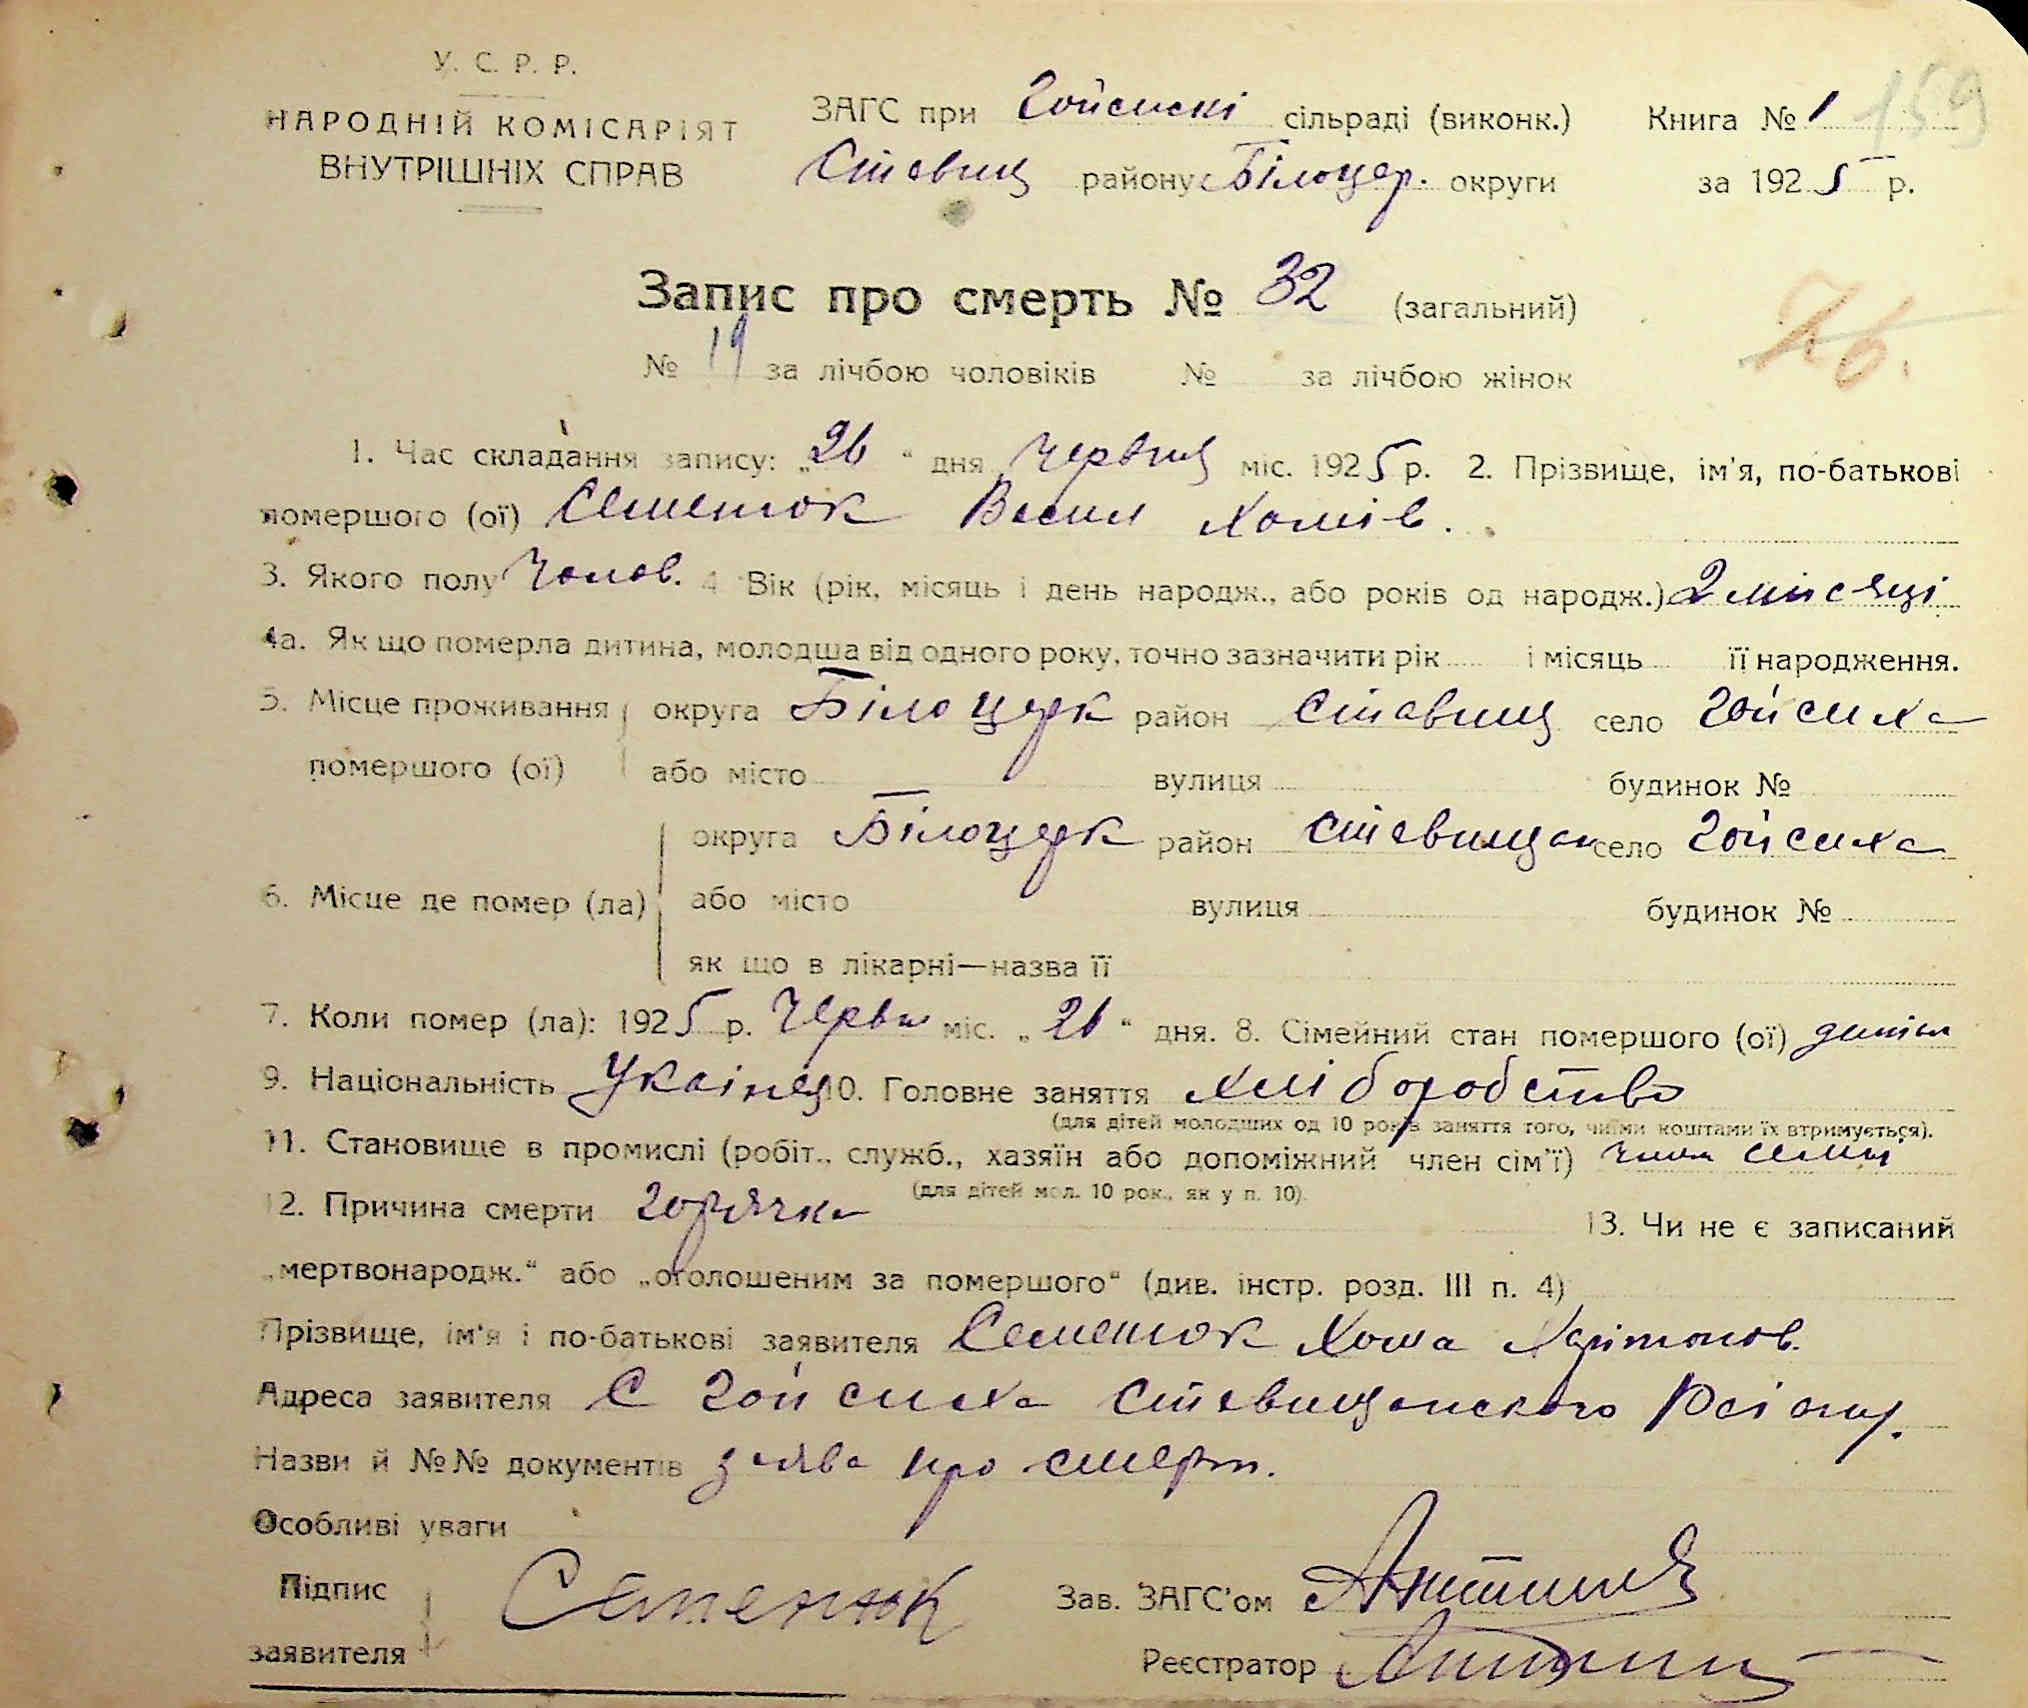 У. С. Р. Р.
НАРОДНІЙ КОМІСАРІЯТ
ВНУТРІШНІХ СПРАВ
ЗАГС при Гойсискі сільраді (виконк.) Книга № 1 159
Ставищ району Білоцер. округи за 1925 р.
Запис про смерть № 32 (загальний)
76.
№ 19 за лічбою чоловіків № за лічбою жінок
1. Час складання запису: „26“ дня Червця міс. 1925 р. 2. Прізвище, ім'я, по-батькові
помершого (ої) Семенюк Васил Хомів.
3. Якого полу Чолов. 4 Вік (рік, місяць і день народж., або років од народж.) 2 місяці
4а. Як що померла дитина, молодша від одного року, точно зазначити рік і місяць її народження.
5. Місце проживання округа Білоцерк район Ставищ село Гойсиха
помершого (ої) або місто вулиця будинок №
округа Білоцерк район Ставищан село Гойсиха
6. Місце де помер (ла) або місто вулиця будинок №
як що в лікарні—назва її
7. Коли помер (ла): 1925 р. Червн міс. „26“ дня. 8. Сімейний стан помершого (ої)
9. Національність Украінец 10. Головне заняття хліборобство
(для дітей молодших од 10 років заняття того, чиїми коштами їх втримується).
11. Становище в промислі (робіт., служб., хазяїн або допоміжний член сім'ї) член семьи
(для дітей мол. 10 рок., як у п. 10).
12. Причина смерти горячка 13. Чи не є записаний
„мертвонародж.“ або „оголошеним за помершого“ (див. інстр. розд. III п. 4)
Прізвище, ім'я і по-батькові заявителя Семенюк Хома Харітонов.
Адреса заявителя С Гойсиха Ставищанского Раіону.
Назви й №№ документів заява про смерть.
Особливі уваги
Підпис заявителя Семенюк Зав. ЗАГС'ом
Реєстратор